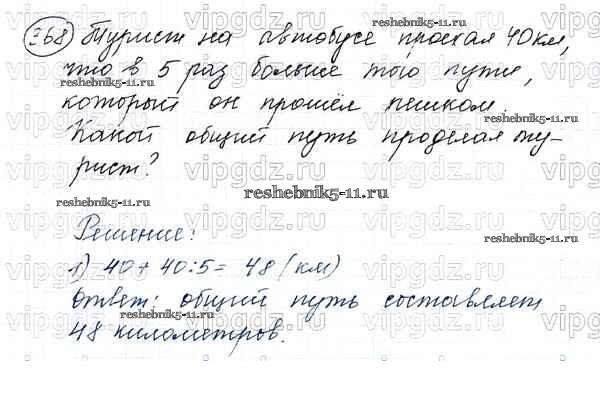 368 Турист на автобусе проехал 40 км,
что в 5 раз больше того пути,
который он прошёл пешком.
Какой общий путь проделал ту-
рист?
Решение:
1) 40 + 40:5 = 48 (км)
Ответ: общий путь составляет
48 километров.
vipgdz.ru
reshebnik5-11.ru